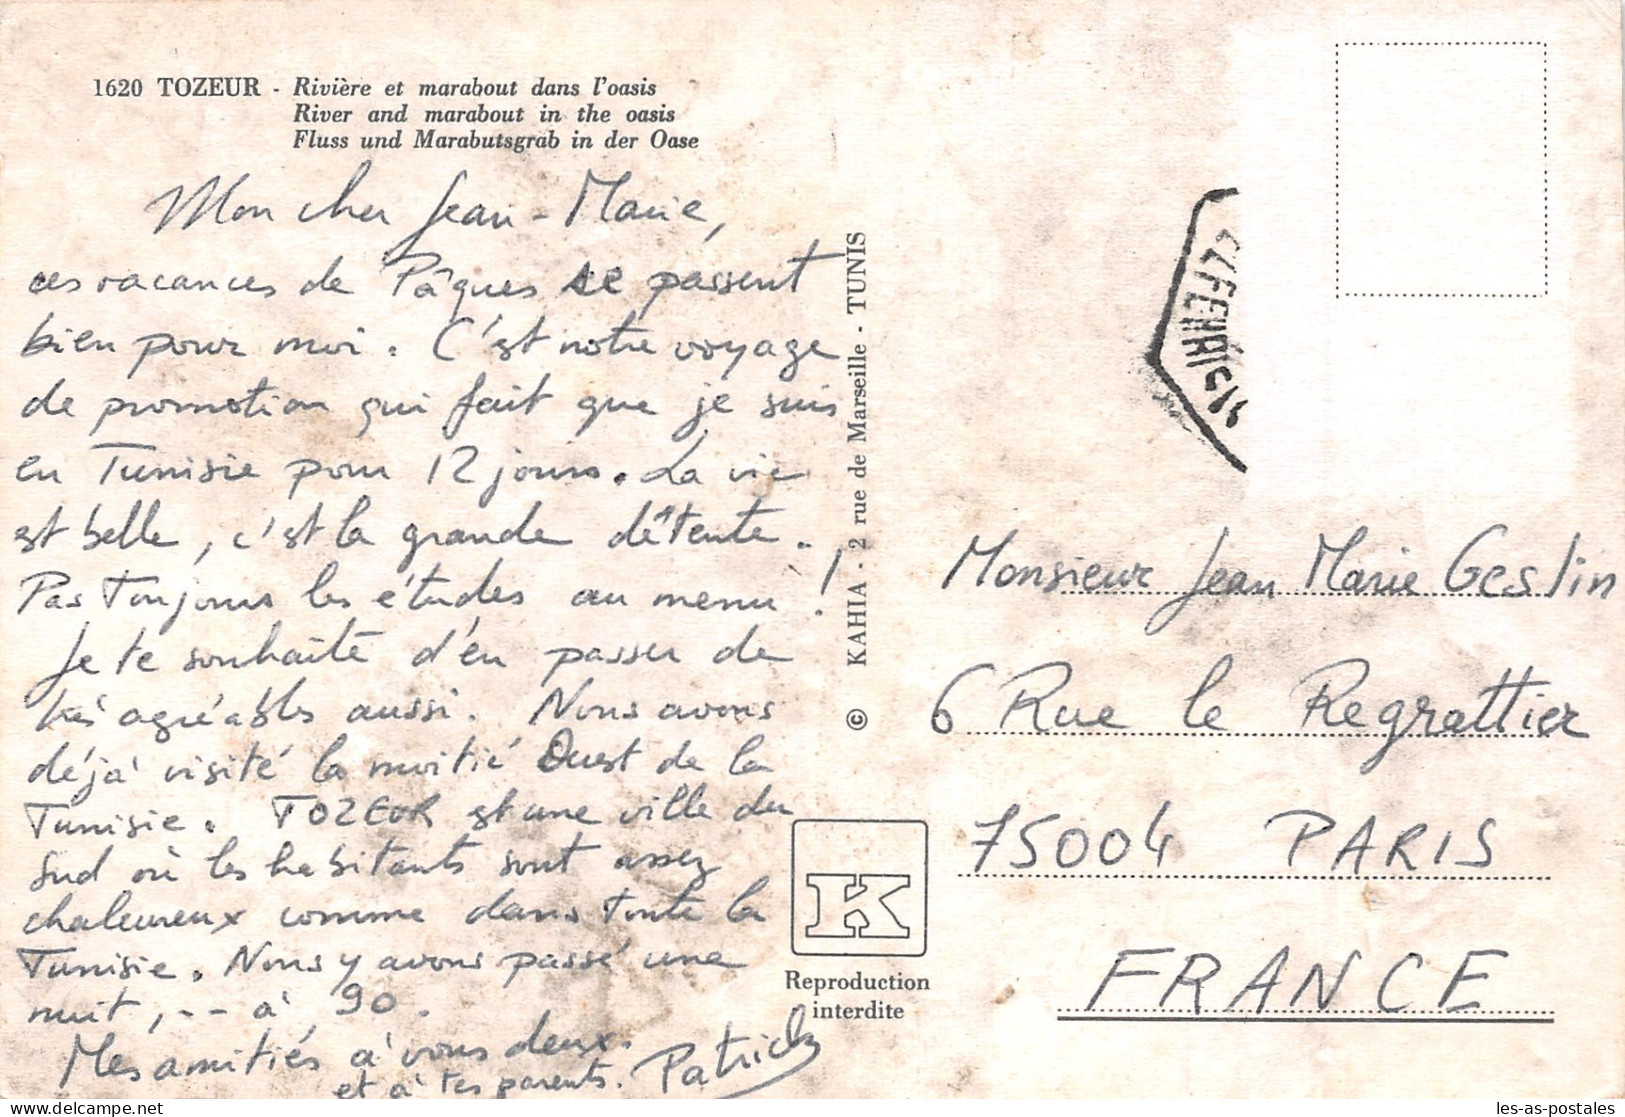 1620 TOZEUR - Rivière et marabout dans l'oasis
River and marabout in the oasis
Fluss und Marabutsgrab in der Oase
Mon cher Jean-Marie,
ces vacances de Pâques se passent
bien pour moi. C'est notre voyage
de promotion qui fait que je suis
en Tunisie pour 12 jours. La vie
est belle, c'est la grande détente.
Pas toujours les études au menu !
Je te souhaite d'en passer de
très agréables aussi. Nous avons
déjà visité la moitié Ouest de la
Tunisie. TOZEUR est une ville du
Sud où les habitants sont assez
chaleureux comme dans toute la
Tunisie. Nous y avons passé une
nuit, -- à 90.
Mes amitiés à vous deux.
et à tes parents. Patrick
© KAHIA - 2 rue de Marseille - TUNIS
K
Reproduction
interdite
Monsieur Jean Marie Geslin
6 Rue le Regrattier
75004 PARIS
FRANCE
les-as-postales